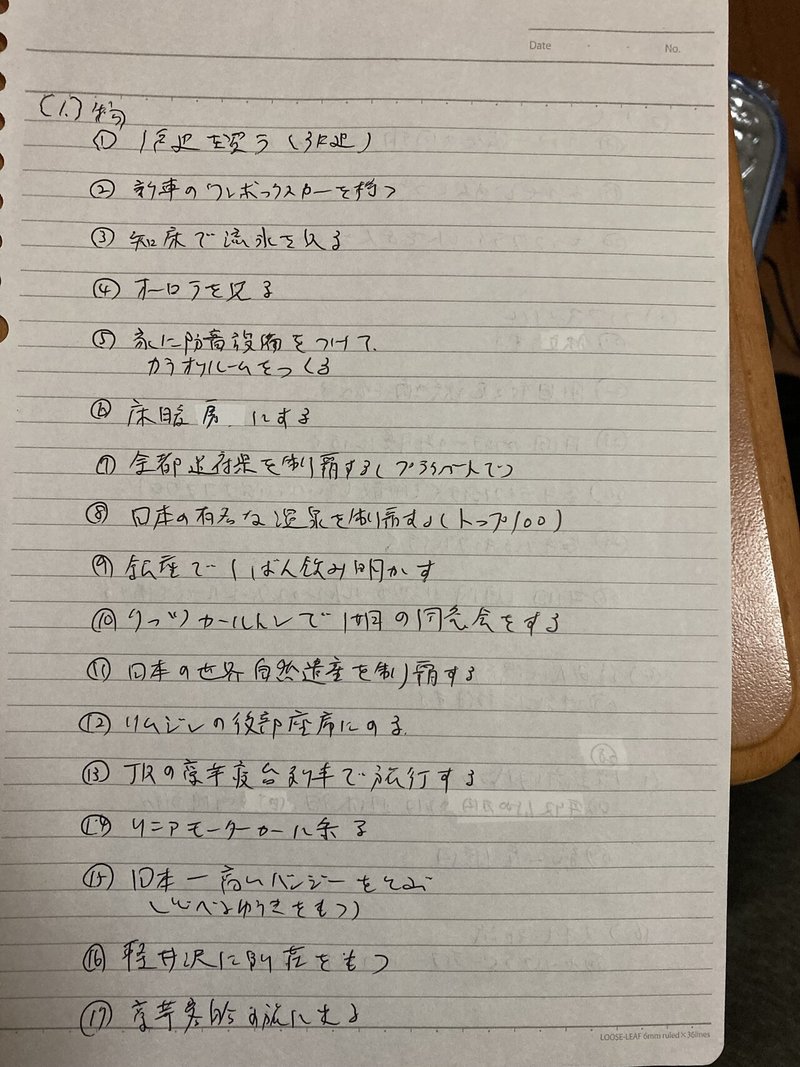 Date ・ ・ No.
(1.) 物
① 1戸建を買う(3F建)
② 新車のワンボックスカーを持つ
③ 知床で流氷を見る
④ オーロラを見る
⑤ 家に防音設備をつけて
カラオケルームをつくる
⑥ 床暖房にする
⑦ 全都道府県を制覇する(プライベートで)
⑧ 日本の有名な温泉を制覇する(トップ100)
⑨ 銀座で1ばん飲み明かす
⑩ リッツカールトンで1期の同窓会をする
⑪ 日本の世界自然遺産を制覇する
⑫ リムジンの後部座席にのる
⑬ JRの豪華寝台列車で旅行する
⑭ リニアモーターカーに乗る
⑮ 日本一高いバンジーをとぶ
(とべるゆうきをもつ)
⑯ 軽井沢に別荘をもつ
⑰ 豪華客船の旅に出る
LOOSE-LEAF 6mm ruled×36lines